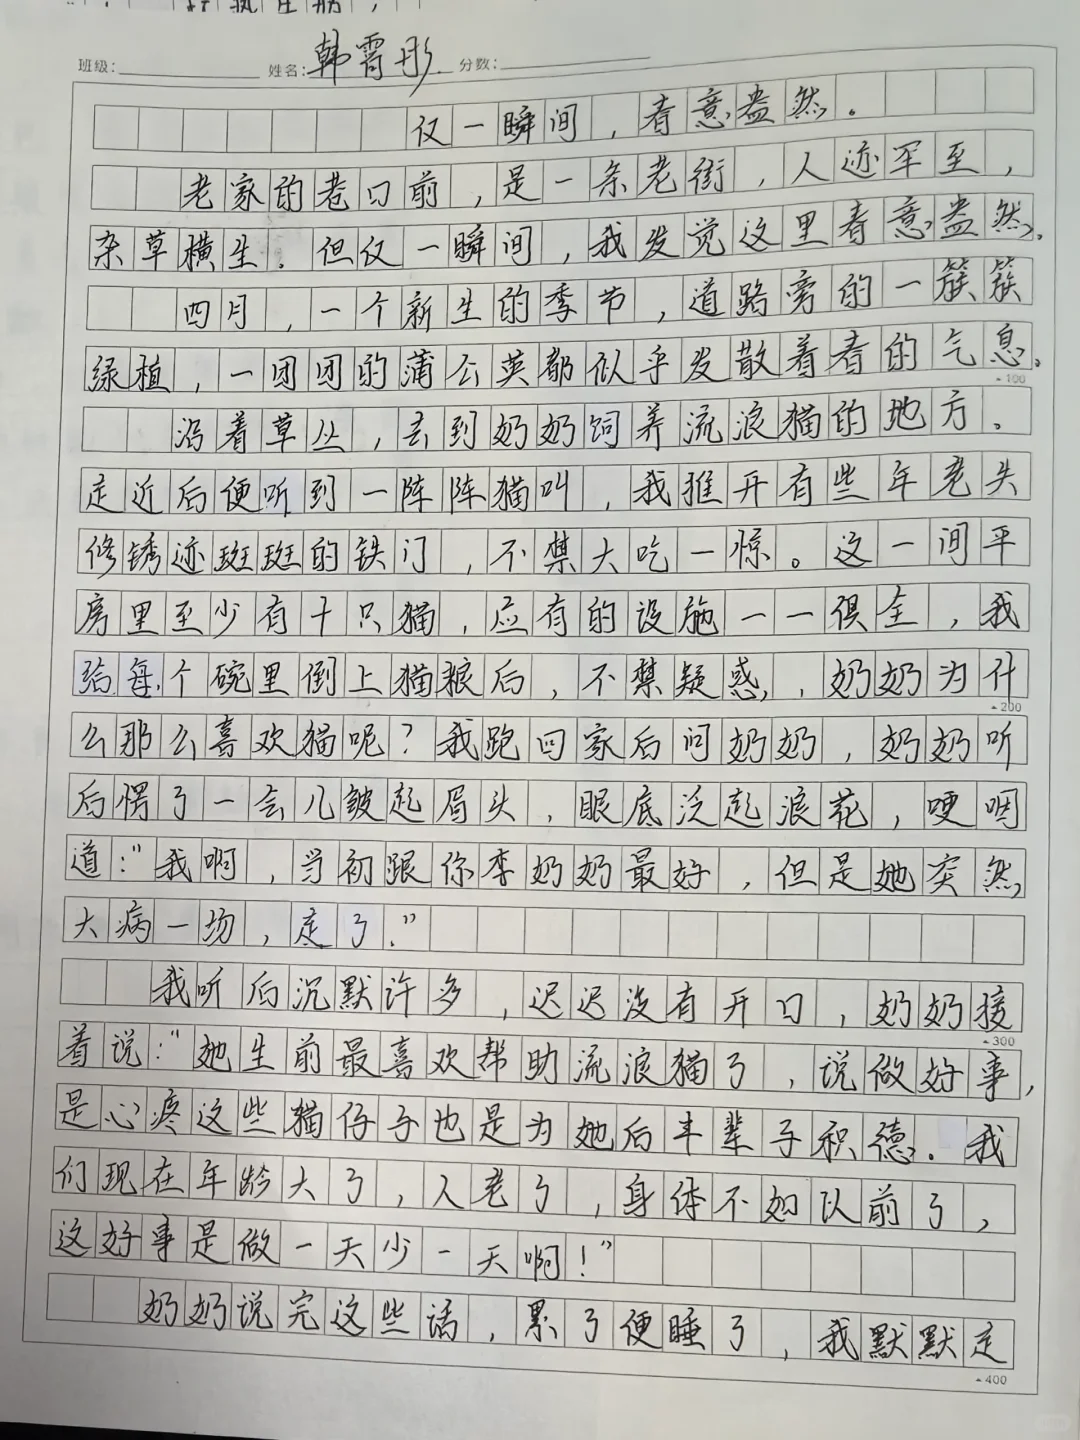 班级: 姓名:韩霄彤 分数:
仅一瞬间，春意盎然。
老家的巷口前，是一条老街，人迹罕至，
杂草横生。但仅一瞬间，我发觉这里春意盎然。
四月，一个新生的季节，道路旁的一簇簇
绿植，一团团的蒲公英都似乎发散着春的气息。
100
沿着草丛，去到奶奶饲养流浪猫的地方。
走近后便听到一阵阵猫叫，我推开有些年老失
修锈迹斑斑的铁门，不禁大吃一惊。这一间平
房里至少有十只猫，应有的设施一一俱全，我
给每个碗里倒上猫粮后，不禁疑惑，，奶奶为什
200
么那么喜欢猫呢？我跑回家后问奶奶，奶奶听
后愣了一会儿皱起眉头，眼底泛起浪花，哽咽
道：“我啊，当初跟你李奶奶最好，但是她突然
大病一场，走了。”
我听后沉默许多，迟迟没有开口，奶奶接
300
着说：“她生前最喜欢帮助流浪猫了，说做好事，
是心疼这些猫仔子也是为她后半辈子积德。我
们现在年龄大了，人老了，身体不如以前了，
这好事是做一天少一天啊！”
奶奶说完这些话，累了便睡了，我默默走
400